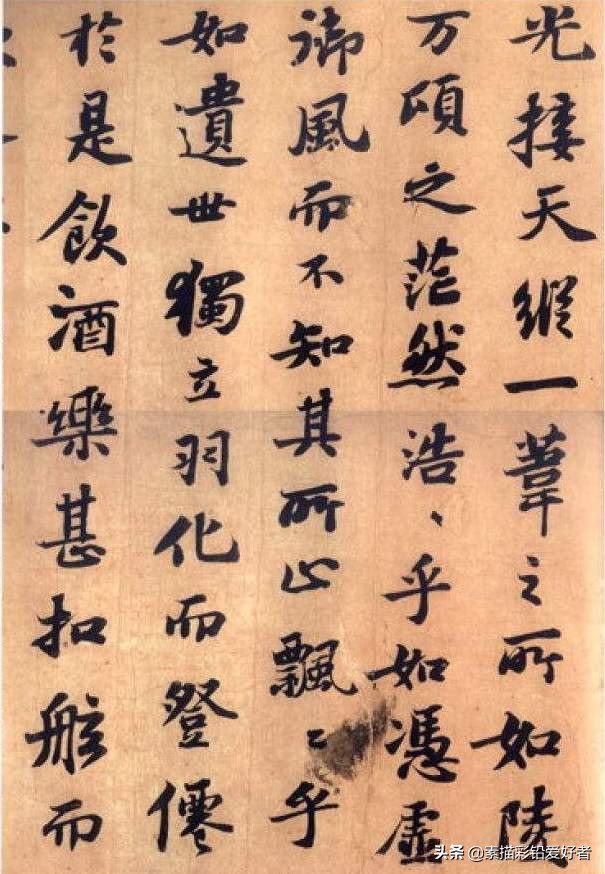 光接天縱一葦之所如陵
万頃之茫然浩〻乎如馮虚
御風而不知其所止飄〻乎
如遺世獨立羽化而登僊
於是飲酒樂甚扣舷而
头条 @素描彩铅爱好者